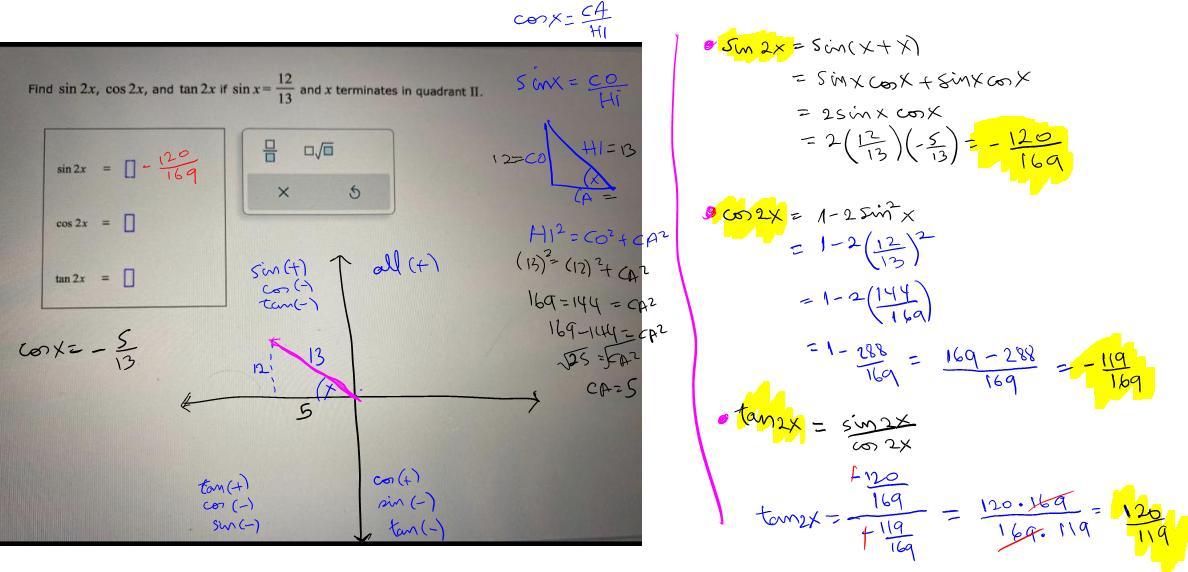 cosx = CA/HI
Find sin 2x, cos 2x, and tan 2x if sin x = 12/13 and x terminates in quadrant II.
sin 2x = □ -120/169
cos 2x = □
tan 2x = □
□/□ □√□
× ↺
cosx = -5/13
sinx = CO/Hi
12=CO
HI=13
x
CA =
HI² = CO² + CA²
(13)² = (12)² + CA²
169 = 144 = CA²
169-144 = CA²
√25 = √CA²
CA = 5
sin(+)
cos(-)
tan(-)
all(+)
12
13
x
5
tan(+)
cos(-)
sin(-)
cos(+)
sin(-)
tan(-)
• sin 2x = sin(x+x)
= sinx cosx + sinx cosx
= 2sinx cosx
= 2(12/13)(-5/13) = -120/169
• cos2x = 1-2sin²x
= 1-2(12/13)²
= 1-2(144/169)
= 1-288/169 = 169-288/169 = -119/169
• tan2x = sin2x/cos2x
tan2x = -120/169/-119/169 = 120.169/169.119 = 120/119